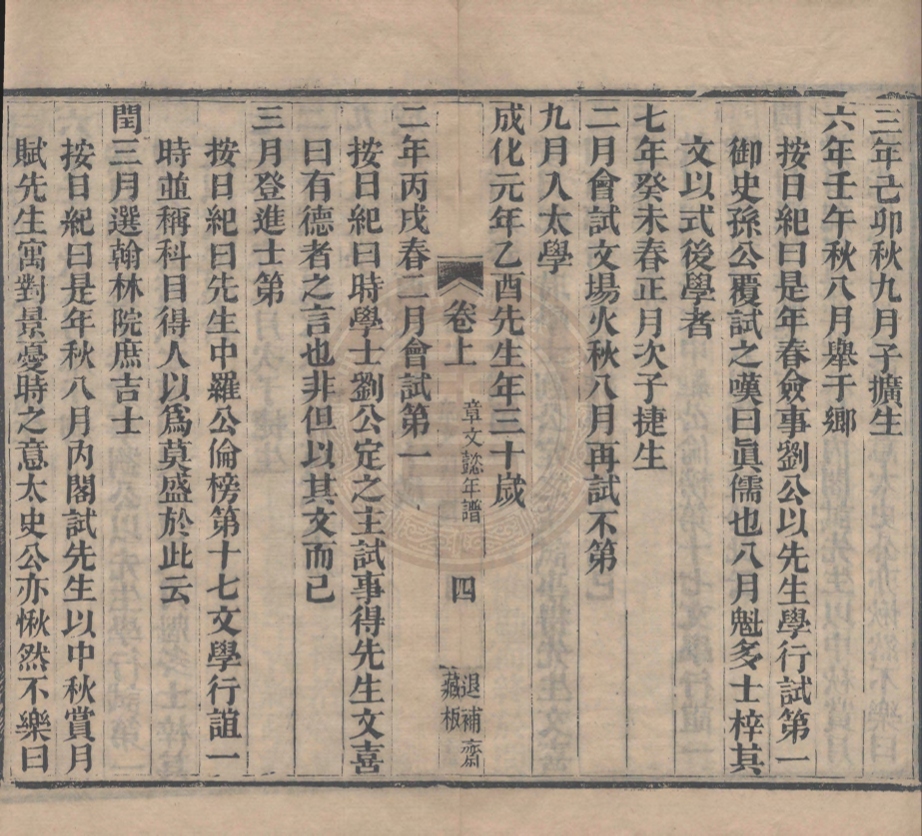 三年己卯秋九月子擴生
六年壬午秋八月舉于鄉
按日紀曰是年春僉事劉公以先生學行試第一
御史孫公覆試之嘆曰眞儒也八月魁多士梓其
文以式後學者
七年癸未春正月次子捷生
二月會試文場火秋八月再試不第
九月入太學
成化元年乙酉先生年三十歲
卷上
章文懿年譜
四
退補齋
藏板
二年丙戌春二月會試第一
按日紀曰時學士劉公定之主試事得先生文喜
曰有德者之言也非但以其文而已
三月登進士第
按日紀曰先生中羅公倫榜第十七文學行誼一
時並稱科目得人以爲莫盛於此云
閏三月選翰林院庶吉士
按日紀曰是年秋八月內閣試先生以中秋賞月
賦先生寓對景憂時之意太史公亦愀然不樂曰